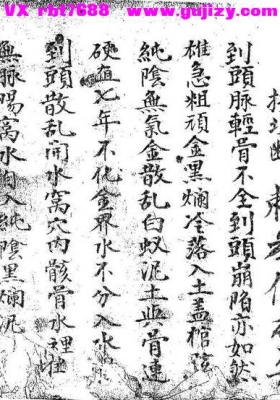 VX rbt7688
www.gujizy.com
到頭脉輕骨不全到頭崩陷亦如然
雄急粗頑金黑爛冷落入土蓋棺
純陰無氣金散乱白蚁泥土與骨連
硬直七年不化金界水不分入水
到頭散乱開水窩穴內骸骨水裡
無脉陽窩水向入純陰黑爛泥